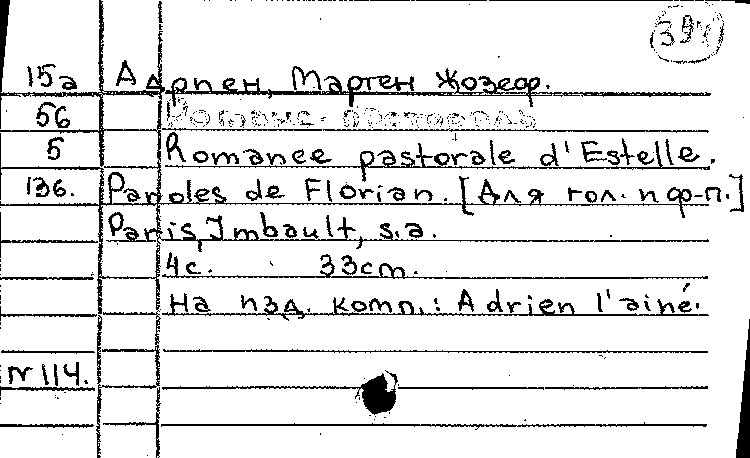 394
15а Адриен, Мартен Жозеф.
56 Романс-пастораль
5 Romance pastorale d'Estelle.
136. Paroles de Florian. [Для гол. и ф-п.]
Paris, Imbault, s.a.
4с. 33cm.
На изд. комп.: Adrien l'ainé.
№114.